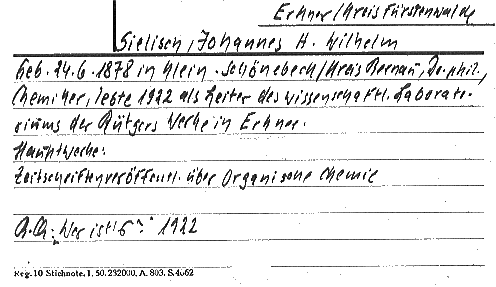 Erkner/Kreis Fürstenwalde
Sielisch, Johannes H. Wilhelm
Geb. 24.6.1878 in Klein-Schönebeck/Kreis Bernau, Dr. phil.,
Chemiker, lebte 1922 als Leiter des wissenschaftl. Laborato-
riums der Rütgers Werke in Erkner.
Hauptwerke:
Zeitschriftenveröffentl. über Organische Chemie
Qu.: Wer ist's? 1922
Reg. 10 Stichnote, I. 50. 232000. A. 803. S. 4062